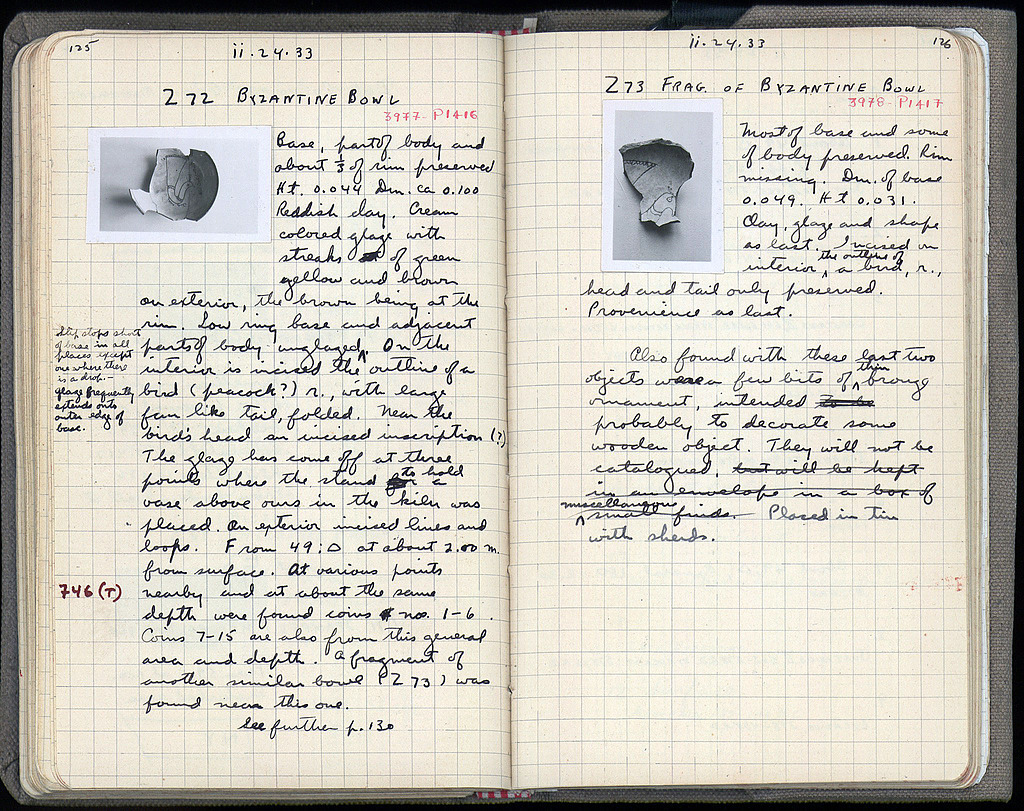 125
ii.24.33
Z 72 BYZANTINE BOWL
3977 - P1416
Base, part of body and
about 1/3 of rim preserved
Ht. 0.044 Dm. ca 0.100
Reddish clay. Cream
colored glaze with
streaks of green
yellow and brown
on exterior, the brown being at the
rim. Low ring base and adjacent
parts of body unglazed^. On the
interior is incised the outline of a
bird (peacock?) r., with large
fan like tail, folded. Near the
bird's head an incised inscription (?)
The glaze has come off at three
points where the stand to hold a
vase above ours in the kiln was
placed. On exterior incised lines and
loops. From 49:Δ at about 2.00 m.
from surface. At various points
nearby and at about the same
depth were found coins no. 1-6.
Coins 7-15 are also from this general
area and depth. A fragment of
another similar bowl (Z 73) was
found near this one.
See further p. 130
Slip stops short
of base in all
places except
one where there
is a drop. -
glaze frequently
extends onto
outer edge of
base.
746 (T)
126
ii.24.33
Z 73 FRAG. OF BYZANTINE BOWL
3978 - P1417
Most of base and some
of body preserved. Rim
missing. Dm. of base
0.049. Ht 0.031.
Clay, glaze and shape
as last. Incised on
interior ^the outline of a bird, r.,
head and tail only preserved.
Provenience as last.
Also found with these last two
objects were a few bits of ^thin bronze
ornament, intended to be
probably to decorate some
wooden object. They will not be
catalogued, but will be kept
in an envelope in a box of
^miscellaneous small finds. Placed in tin
with sherds.